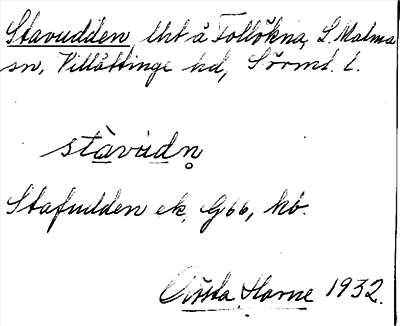 Stavudden, lht å Follökna, L. Malma
sn, Villåttinge hd, Sörml. l.
stàvúdn̥
Stafudden ek, G66, hb.
Gösta Harne 1932.